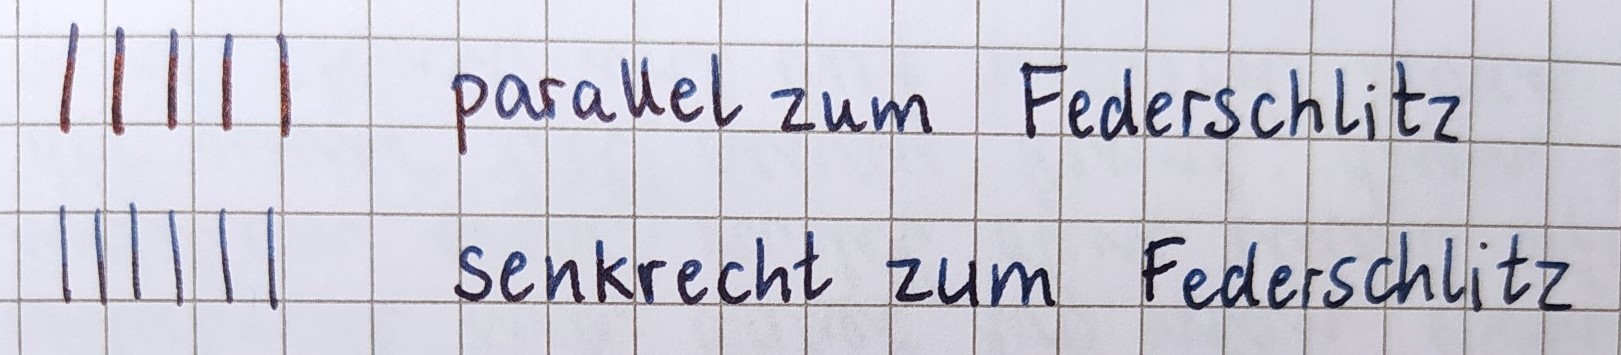 parallel zum Federschlitz
senkrecht zum Federschlitz